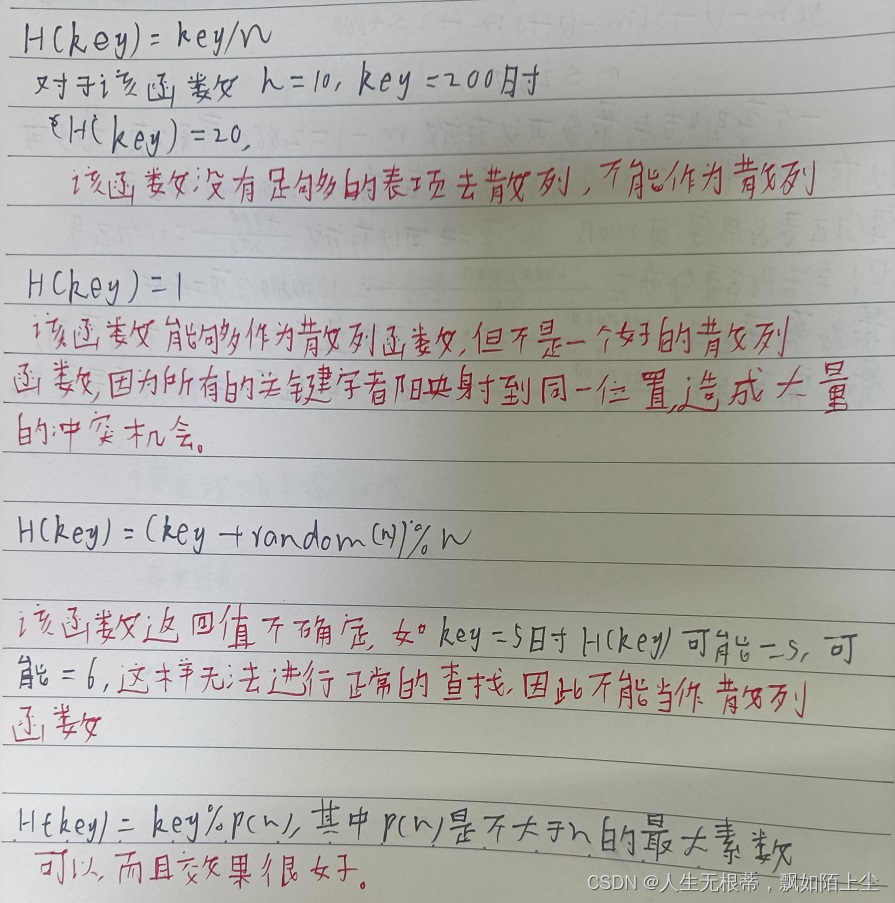 H(key) = key/n
对于该函数 n=10, key=200时
H(key) = 20,
该函数没有足够多的表项去散列，不能作为散列
H(key) = 1
该函数能够作为散列函数,但不是一个好的散列
函数,因为所有的关键字都映射到同一位置,造成大量
的冲突机会。
H(key) = (key + random(n))%n
该函数返回值不确定,如key=5时H(key)可能=5,可
能=6,这样无法进行正常的查找,因此不能当作散列
函数
H(key) = key%p(n),其中p(n)是不大于n的最大素数
可以,而且效果很好。
CSDN @人生无根蒂，飘如陌上尘